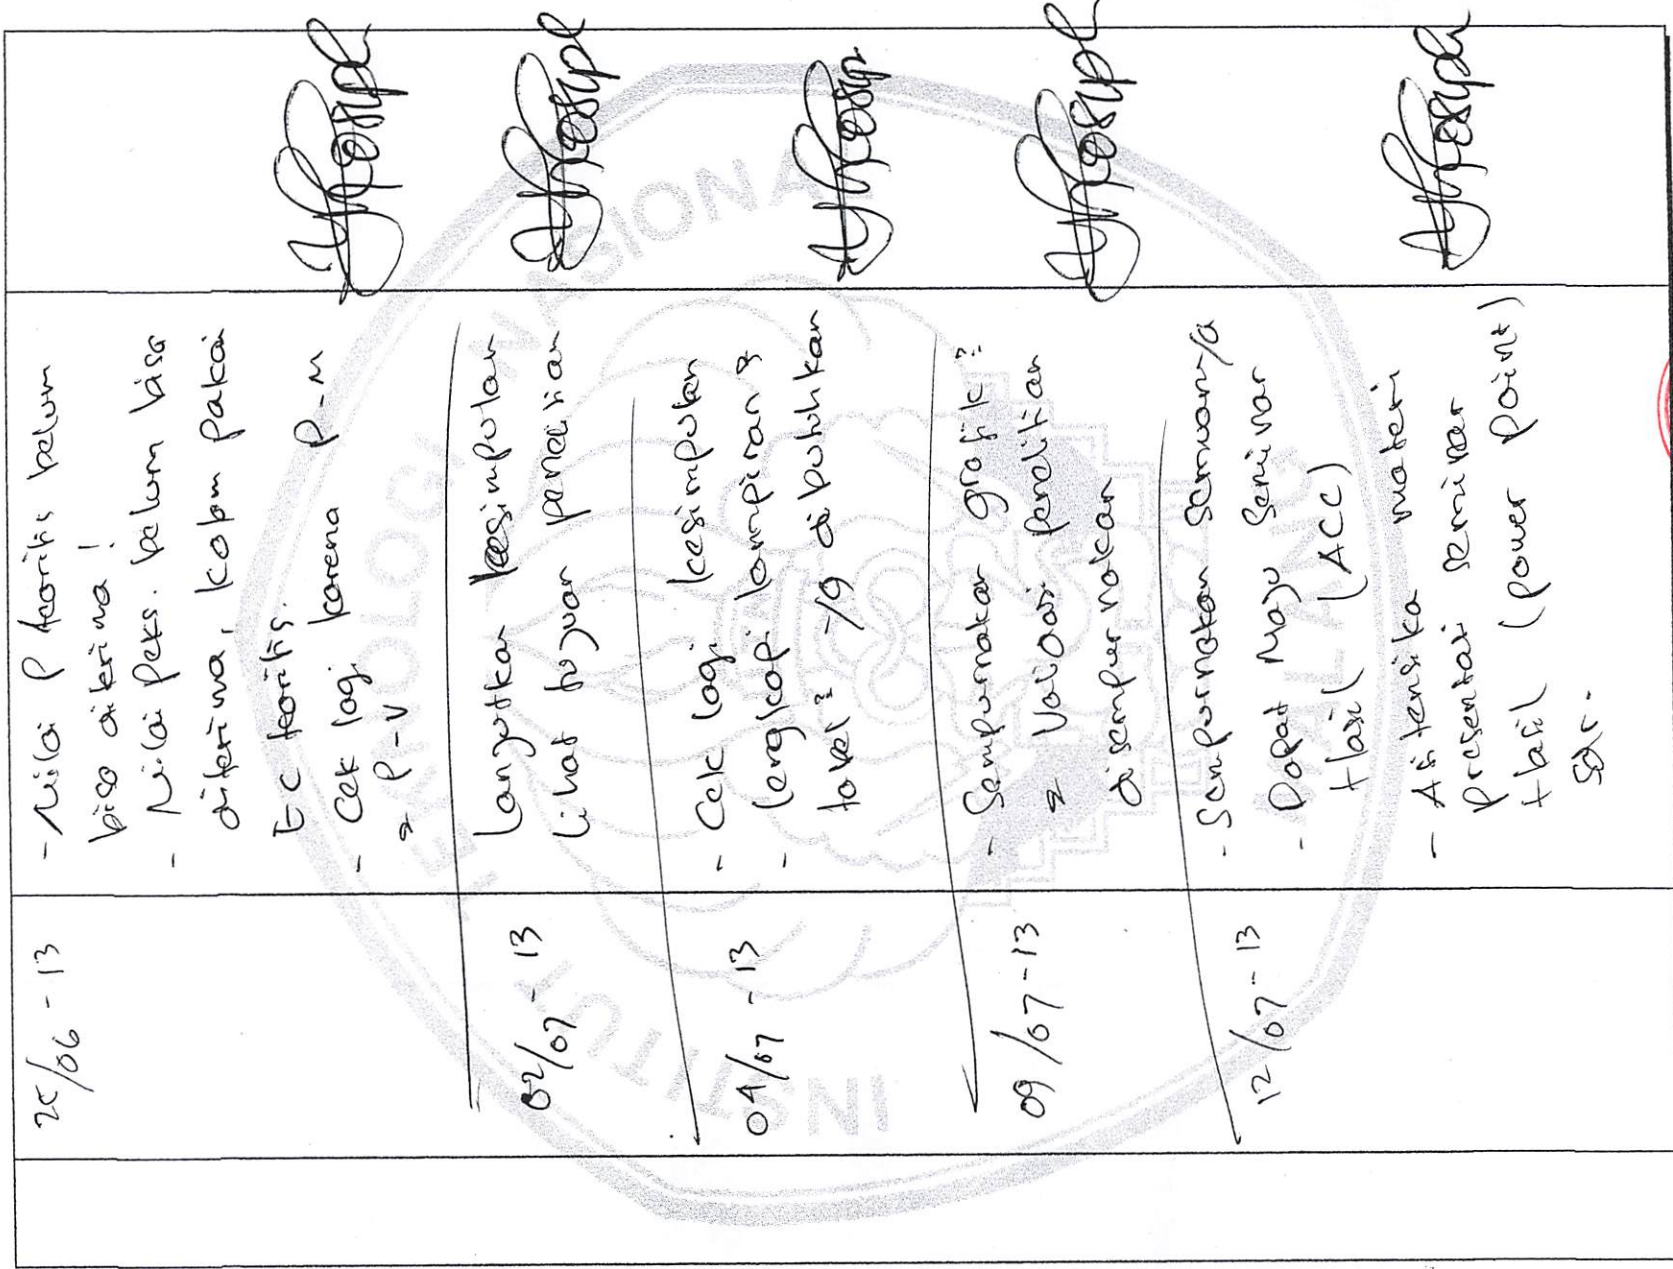 25/06 - 13
- Nilai P teoritis belum
bisa diterima!
- Nilai Peks. belum bisa
diterima, kolom pakai
EC teoritis.
- Cek lagi karena P-M
P-V
02/07 - 13
Lanjutkan kesimpulan
Lihat tujuan penelitian
04/07 - 13
- Cek lagi kesimpulan
- Lengkapi lampiran²
tabel² yg dibutuhkan
09/07-13
- Sempurnakan grafik²
Validasi Penelitian
disempurnakan
12/07-13
- Sempurnakan semuanya
- Dapat Maju Seminar
Hasil (ACC)
- materi
Presentasi seminar
Hasil (power point)
INSTITUT TEKNOLOGI NASIONAL
MALANG